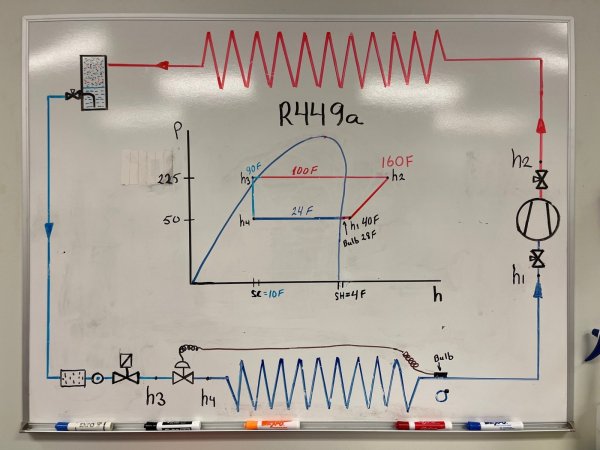 R449a
P
90F
160F
225
h3
100F
h2
h2
24F
50
h4
h1 40F
Bulb 28F
h1
SC=10F
SH=4F
h
Bulb
h3
h4